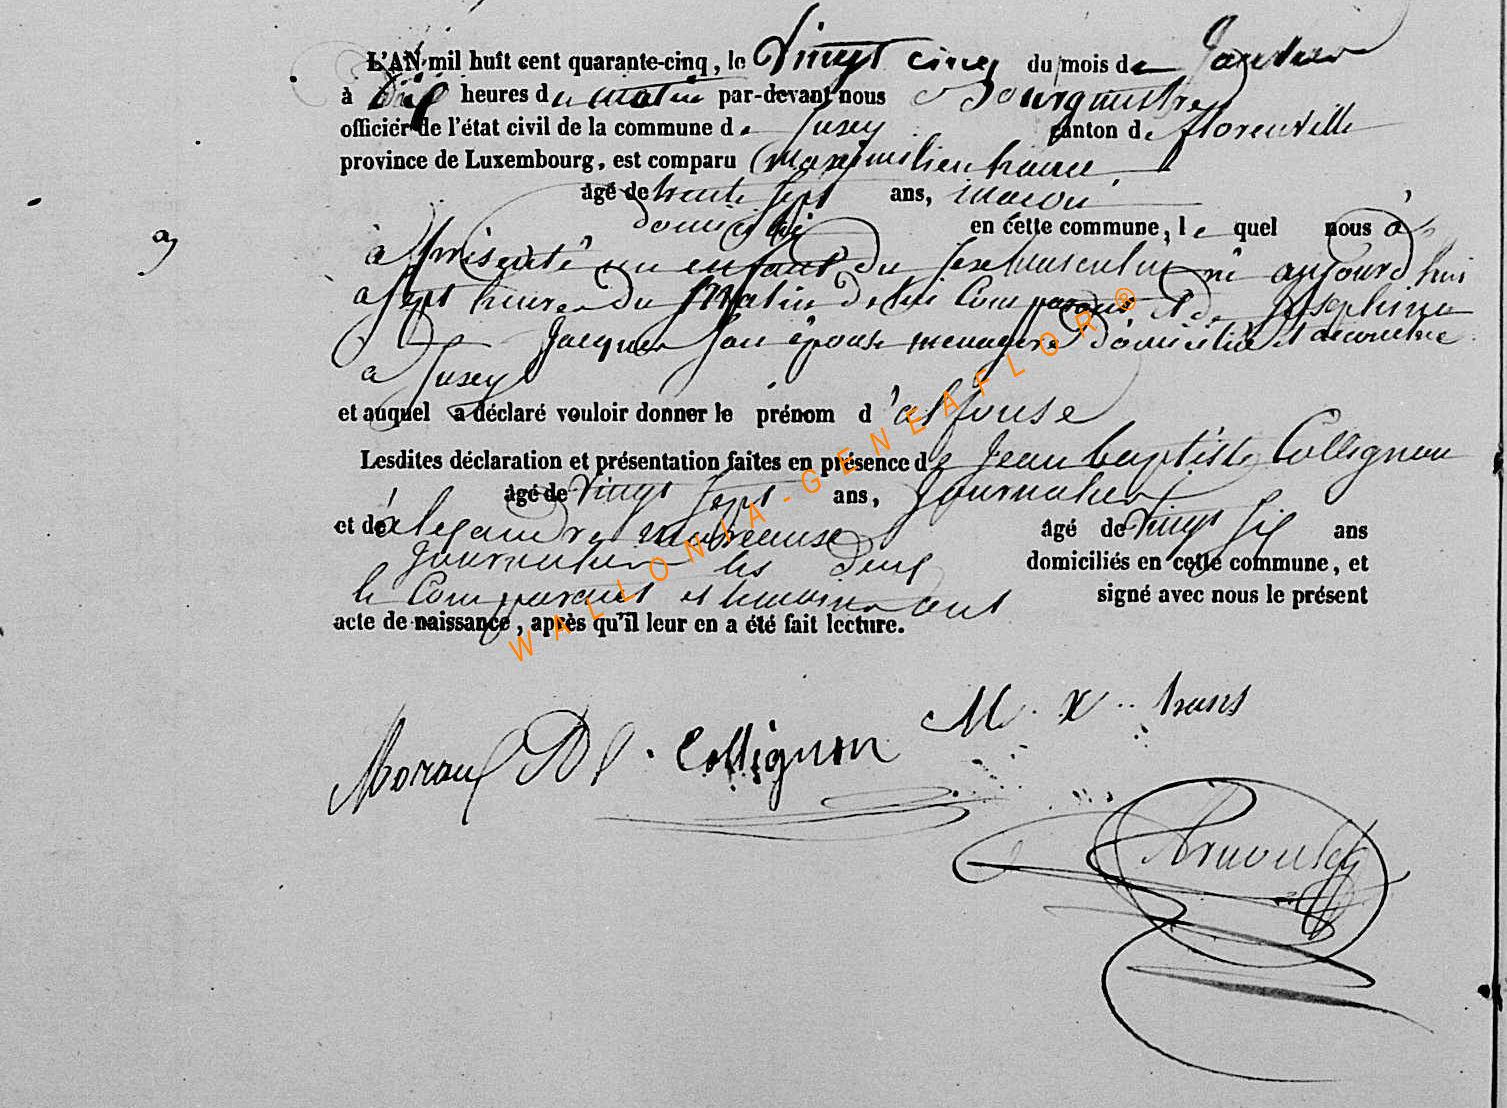 L'AN mil huit cent quarante-cinq, le Vingt cinq du mois de Janvier
à Dix heures du matin par-devant nous Bourgmestre
officier de l'état civil de la commune de Jusey canton de florenville
province de Luxembourg, est comparu Maximilien
âgé de trente sept ans, maçon
domicilié en cette commune, le quel nous à
à présenté un enfant du sexe masculin né aujourd'hui
a sept heures du Matin de lui Comparant et de Josephine
Jacques son épouse menagere domicilié et
a Jusey
et auquel a déclaré vouloir donner le prénom d'alfonse
Lesdites déclaration et présentation faites en présence de Jean baptiste Collignon
âgé de Vingt sept ans, Journalier
et de alexandre âgé de Vingt six ans
Journalier les deux domiciliés en cette commune, et
le Comparant et temoins ont signé avec nous le présent
acte de naissance, après qu'il leur en a été fait lecture.
M. X.
Collignon
WALLONIA-GENEAFLOR®